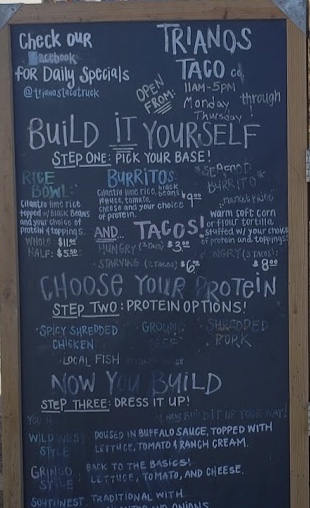 Check OUR
facebook
for Daily Specials
@trianostacotruck
TRIANOS
TACO co.
OPEN FROM:
11AM-5PM
Monday through
Thursday
BUiLD iT YOURSELF
STEP ONE: PICK YOUR BASE!
RICE BOWL:
Cilantro lime rice,
topped w/ Black Beans
and your choice of
protein & toppings.
WHOLE: $11
HALF: $5.50
BURRITOS:
cilantro lime rice, black beans
lettuce, tomato,
cheese and your choice
of protein.
$9.00
*SEAFOOD
BURRITO*
market
AND... TACOS!
HUNGRY (3 TACOS) $3
STARVING (2 TACOS) $6
warm soft corn
or flour tortilla
stuffed w/ your choice
of protein and toppings.
$8.00
CHOOSE YOUR PROTEiN
STEP TWO: PROTEIN OPTIONS!
•SPICY SHREDDED
CHICKEN
•GROUND
BEEF
SHREDDED
PORK
•LOCAL FISH
NOW YOU BUILD
STEP THREE: DRESS IT UP!
WILD WEST
STYLE
DOUSED IN BUFFALO SAUCE, TOPPED WITH
LETTUCE, TOMATO & RANCH CREAM.
GRINGO
STYLE
BACK TO THE BASICS!
LETTUCE, TOMATO, AND CHEESE.
SOUTHWEST
TRADITIONAL WITH
AND ONIONS